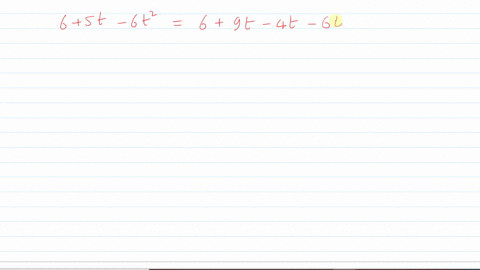 6 + 5t - 6t² = 6 + 9t - 4t - 6t